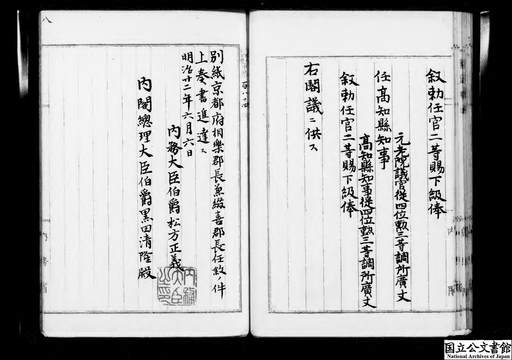 叙勅任官二等賜下級俸
元老院議官從四位勲三等調所廣丈
任高知縣知事
高知縣知事從四位勲三等調所廣丈
叙勅任官二等賜下級俸
右閣議ニ供ス
別紙京都府相樂郡長兼綴喜郡長任叙ノ件
上奏書進達ス
明治廿二年六月六日
内務大臣伯爵松方正義
内閣總理大臣伯爵黒田清隆殿
八
国立公文書館
National Archives of Japan